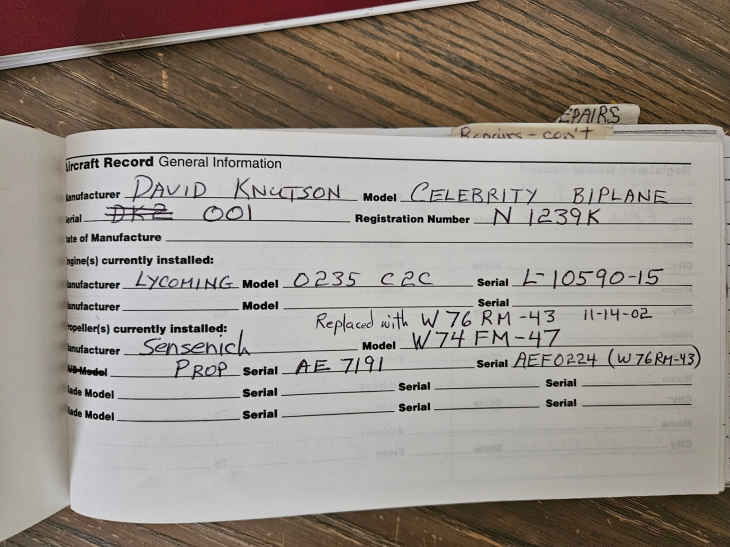 EPAIRS
Repairs - con't
ircraft Record General Information
anufacturer DAVID KNUTSON Model CELEBRITY BIPLANE
erial DK2 001 Registration Number N 1239K
ate of Manufacture
ngine(s) currently installed:
anufacturer LYCOMING Model O235 C2C Serial L-10590-15
anufacturer Model Serial
ropeller(s) currently installed: Replaced with W76RM-43 11-14-02
anufacturer Sensenich Model W74FM-47
Model PROP Serial AE 7191 Serial AEF0224 (W76RM-43)
lade Model Serial Serial Serial
lade Model Serial Serial Serial